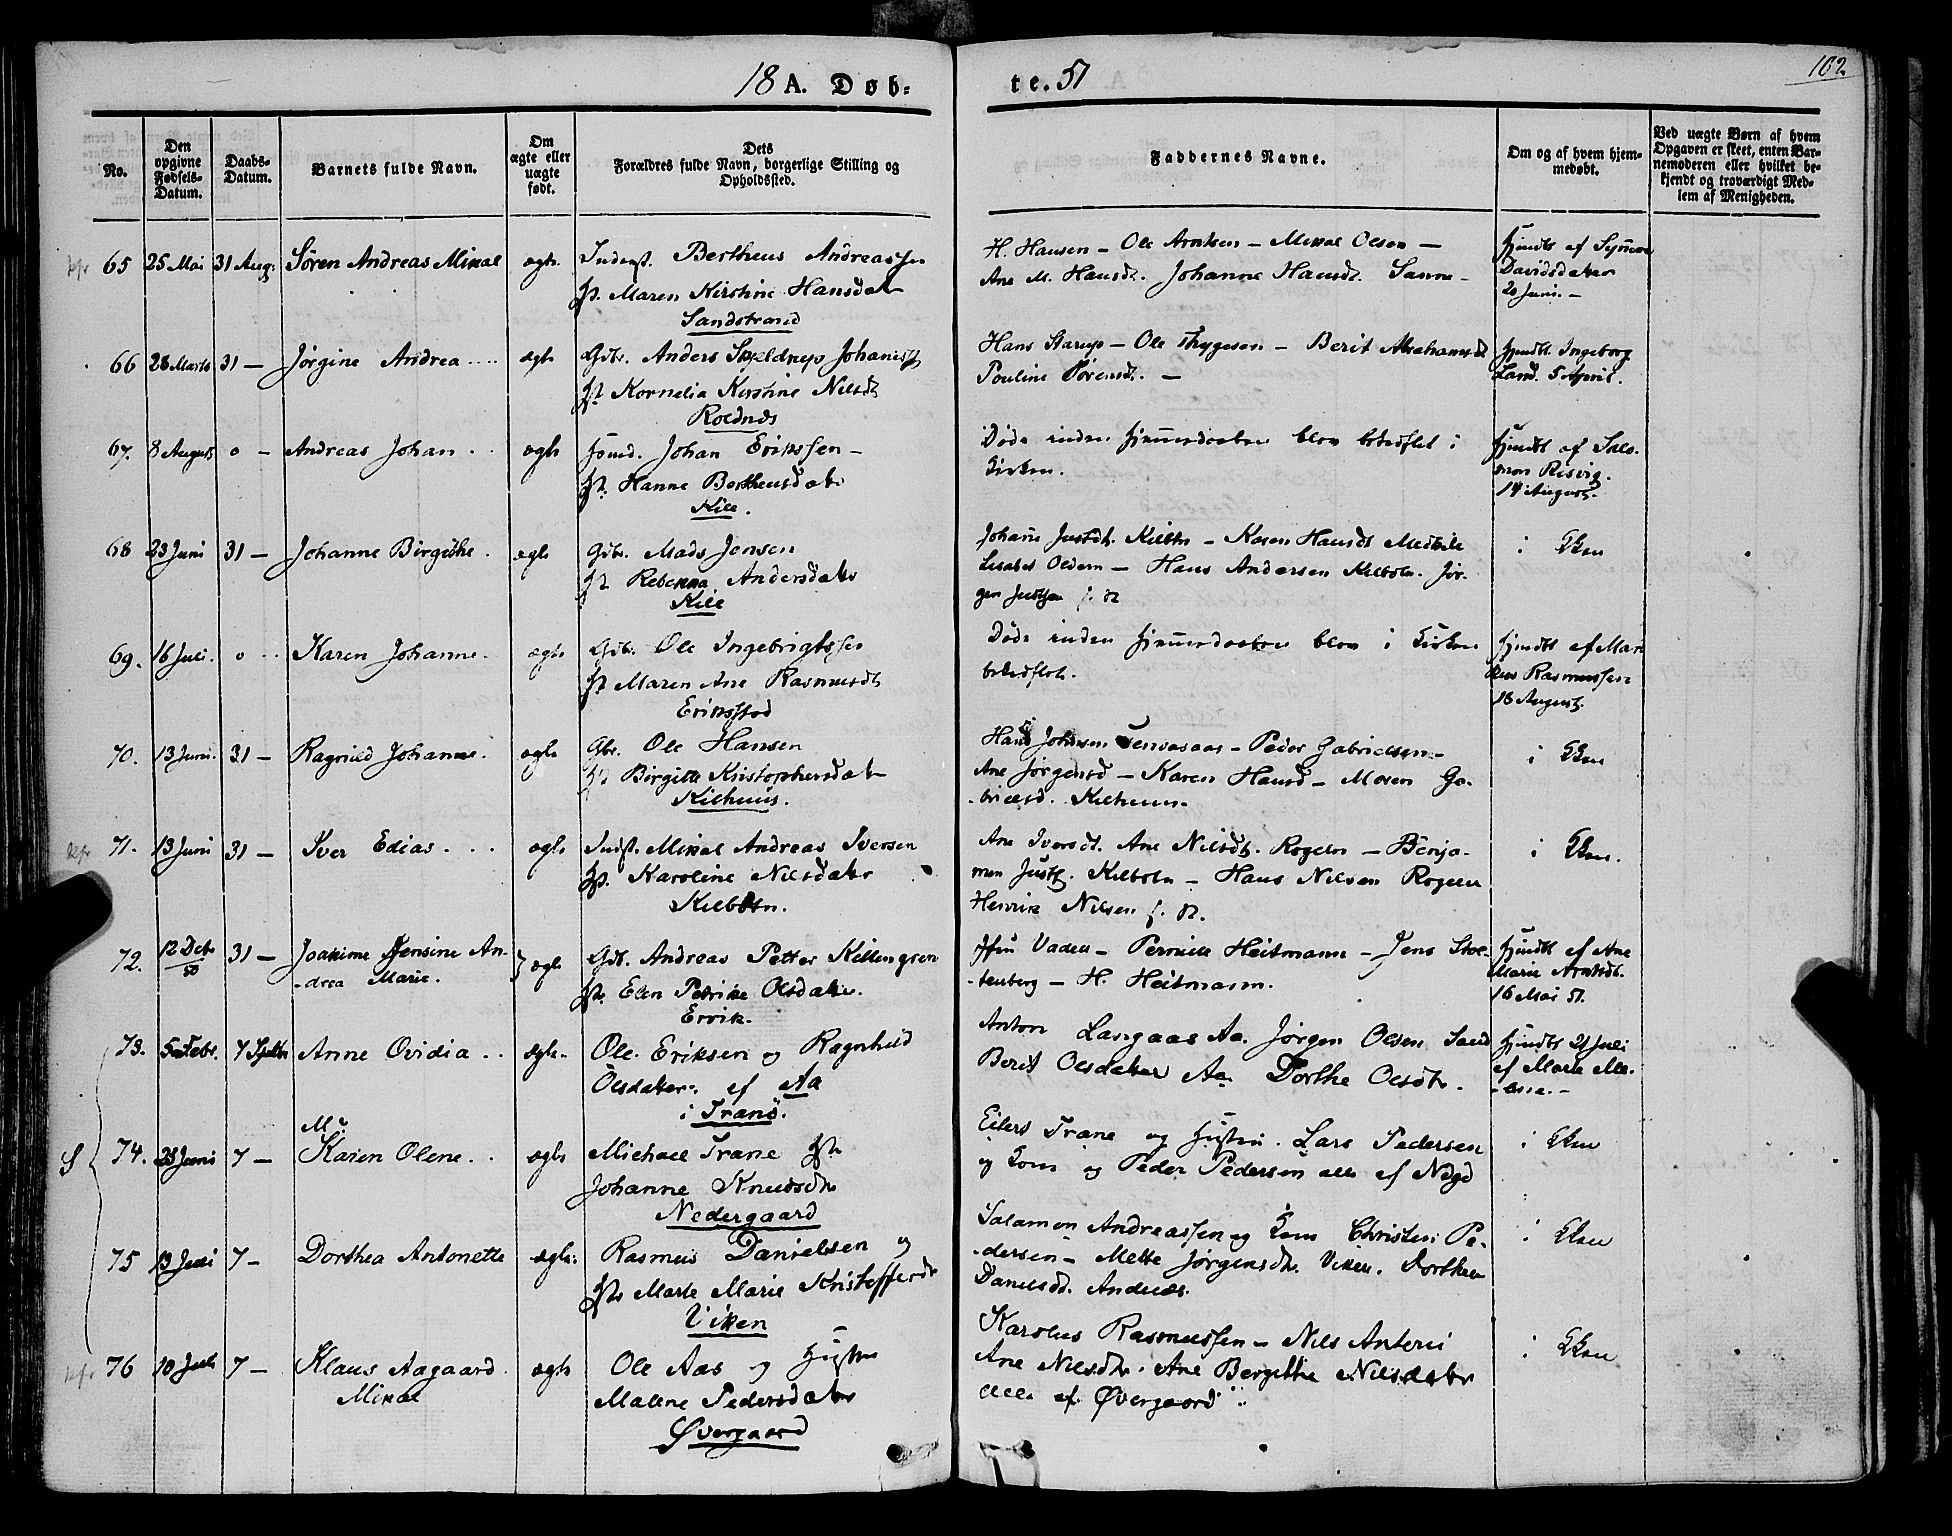 18 A. Døb=
te. 51
102
No.
Den opgivne Fødsels-Datum.
Daabs-Datum.
Barnets fulde Navn.
Om ægte eller uægte født.
Dets Forældres fulde Navn, borgerlige Stilling og Opholdssted.
Faddernes Navne.
Om og af hvem hjemmedøbt.
Ved uægte Børn af hvem Opgaven er skeet, enten Barnemoderen eller hvilket bekjendt og troværdigt Medlem af Menigheden.
65 25 Mai 31 Aug: Søren Andreas Mikal ægte
Inderst. Bertheus Andreassen
Maren Kirstine Hansdater
Sandstrand
H. Hansen – Ole Arntsen – Mikal Olsen –
Ane M. Hansdt. Johanne Hansdt. Sanne –
Hjmdbt af
Davidsdater
20 Juni. –
66 28 Marts 31 – Jørgine Andrea ægte
Gdbr. Anders Skjeldrup
Kornelia Kirstine Nilsdt
Roldnæs
Hans Starup – Ole Thygesen – Berit Abrahamsdt
Pouline Sørensdt. –
Hjmdbt. Ingeborg
Sand. 5 April.
67. 8 August o – Andreas Johan ægte
Johan Erikssen –
Hanne Bertheusdater
Kile.
Døde inden Hjemmedaaben blev bekræftet i
Kirken.
Hjmdbt af Salomon Risvig.
14 August.
68 23 Juni 31 – Johanne Birgithe ægte
Gdbr. Mads Jensen
Rebekka Andersdater
Kile
Johan Justdt. Kilbtn – Karen Hansdt
– Hans Andersen Kilbotn. Jør-
gen
i Kken
69. 16 Juli. o Karen Johanne ægte
Gdbr. Ole Ingebrigtssen
Maren Ane Rasmusdt
Eriksstad
Døde inden Hjemmedaaben blev i Kirken
bekræftet.
Hjmdbt af
Rasmussen
16 August.
70. 13 Juni. 31 – Ragnild Johanne. ægte
Gbr. Ole Hansen
Birgitte Kristophersdater
Kilhuus.
Hans Johnsen – Peder Gabrielsen –
Ane Jørgensd – Karen Hansd – Maren Ga-
brielsd. Kilhuus.
i Kken
71. 13 Juni 31 – Iver Edias ægte
Indst. Mikal Andreas Iversen
Karoline Nilsdater
Kilbotn.
Ane Iversdt. Ane Nilsdt. Rogeln – Benja-
men Kilbotn – Hans Nilsen Rogeln
Henrik Nilsen
i Kken.
72. 12 Decbr 50 31 – Joakime Jensine An-
-drea Marie. ægte
Gdb. Andreas Petter Killingsen
Elen Petrike Olsdater.
Ervik.
– Pernille Heitmann – Jens Stol-
-tenberg – H. Heitmann.
Hjmdbt af Ane
Marie Arntsdt.
16 Mai 51.
73. 5 Febr. 7 Septbr Anne Ovidia ægte.
Ole Eriksen og Ragnhild
Olsdater. af Aa
i Tranö.
Anton Langaas Aa. Jørgen Olsen Sand
Berit Olsdater Aa Dorthe Olsdtr.
Hjmdbt 21 Juli
af Marie
74. 28 Juni 7 – Karen Olene ægte
Michael Trane
Johanne Knudsdtr
Nedergaard
Eilert Trane og Hustru. Lars Pedersen
og Kone og Peder Pedersen alle af Ndgd
i Kken
75 13 Juni 7 – Dorthea Antonette ægte.
Rasmus Danielsen og
Marte Marie Kristoffersdtr
Viken
Salamon Andreassen og Kone Christen Pe-
-dersen – Mette Jørgensdtr. Viken. Dorthea
Danielsd.
i Kken
76 10 Juli 7 – Klaus Aagaard ægte
Mikal
Ole Aas og Hustru
Malene Pedersdater
Øvergaard
Karolus Rasmussen – Nils
Ane Nilsdtr. Ane Bergitthe Nilsdater
alle af Øvergaard
i Kken